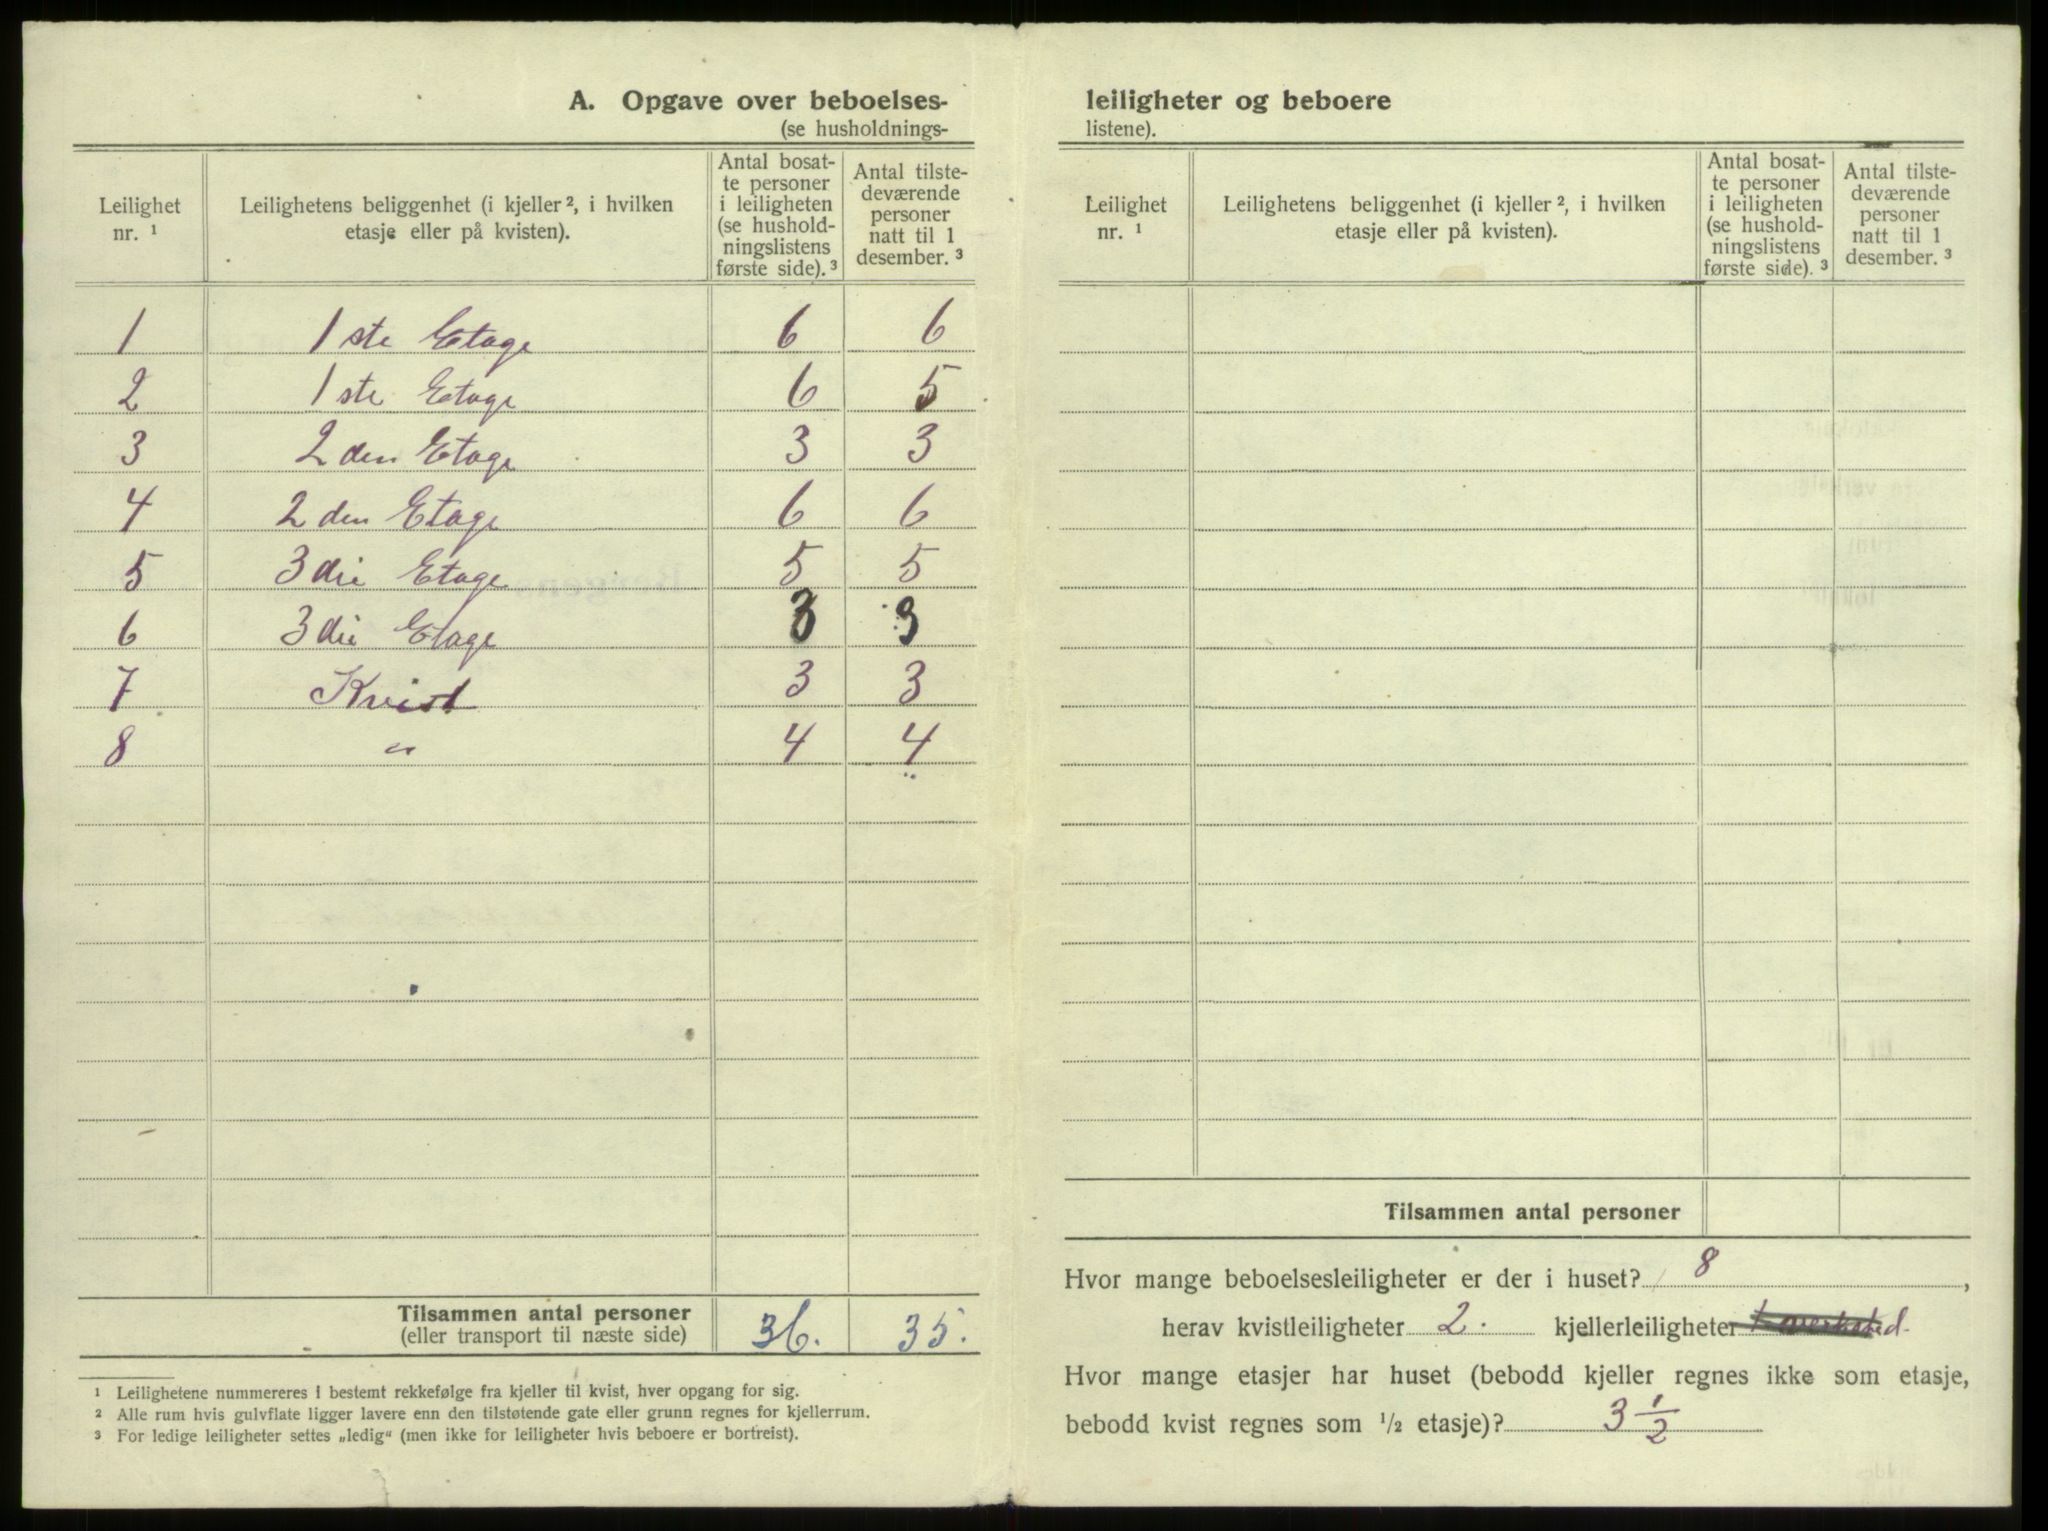 A. Opgave over beboelses-
(se husholdnings-
Leilighet nr. ¹ | Leilighetens beliggenhet (i kjeller ², i hvilken etasje eller på kvisten). | Antal bosatte personer i leiligheten (se husholdningslistens første side). ³ | Antal tilstedeværende personer natt til 1 desember. ³
1 | 1ste Etage | 6 | 6
2 | 1ste Etage | 6 | 5
3 | 2den Etage | 3 | 3
4 | 2den Etage | 6 | 6
5 | 3die Etage | 5 | 5
6 | 3die Etage | 3 | 3
7 | Kvist | 3 | 3
8 | " | 4 | 4
Tilsammen antal personer
(eller transport til næste side) | 36. | 35.
¹ Leilighetene nummereres i bestemt rekkefølge fra kjeller til kvist, hver opgang for sig.
² Alle rum hvis gulvflate ligger lavere enn den tilstøtende gate eller grunn regnes for kjellerrum.
³ For ledige leiligheter settes „ledig“ (men ikke for leiligheter hvis beboere er bortreist).
leiligheter og beboere
listene).
Leilighet nr. ¹ | Leilighetens beliggenhet (i kjeller ², i hvilken etasje eller på kvisten). | Antal bosatte personer i leiligheten (se husholdningslistens første side). ³ | Antal tilstedeværende personer natt til 1 desember. ³
Tilsammen antal personer
Hvor mange beboelsesleiligheter er der i huset? 8,
herav kvistleiligheter 2. kjellerleiligheter
Hvor mange etasjer har huset (bebodd kjeller regnes ikke som etasje,
bebodd kvist regnes som ½ etasje)? 3 ½